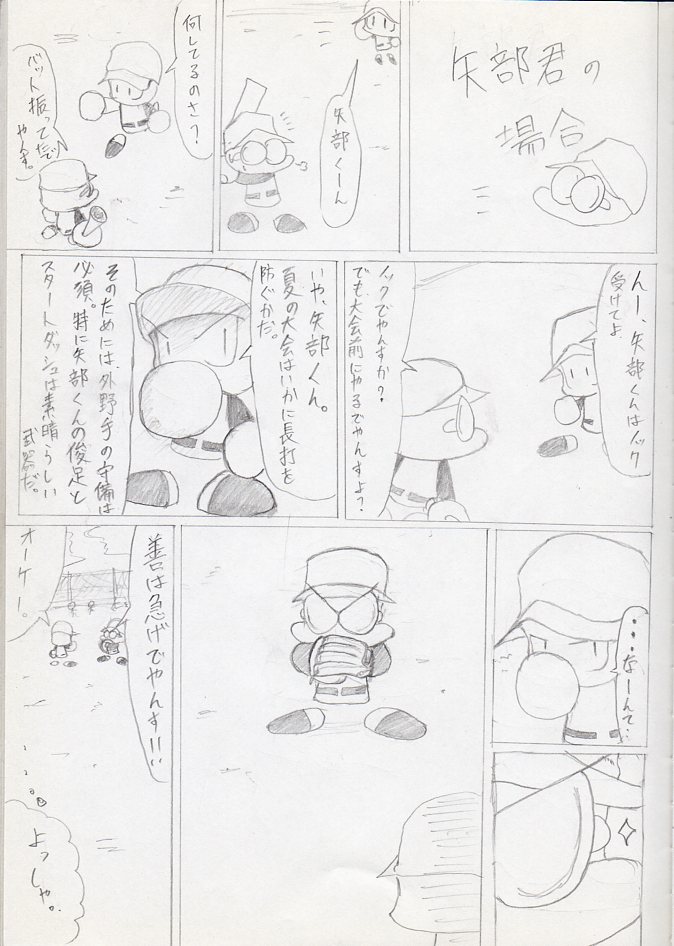 矢部君の
場合
矢部くーん
何してるのさ？
バット振ってたで
やんす。
んー、矢部くんはノック
受けてよ
ノックでやんすか？
でも大会前にやるでやんすよ？
いや、矢部くん。
夏の大会はいかに長打を
防ぐかだ。
そのためには、外野手の守備は
必須。特に矢部くんの俊足と
スタートダッシュは素晴らしい
武器だ。
・・・なーんて…
善は急げでやんす!!!
オーケー。
よっしゃ。